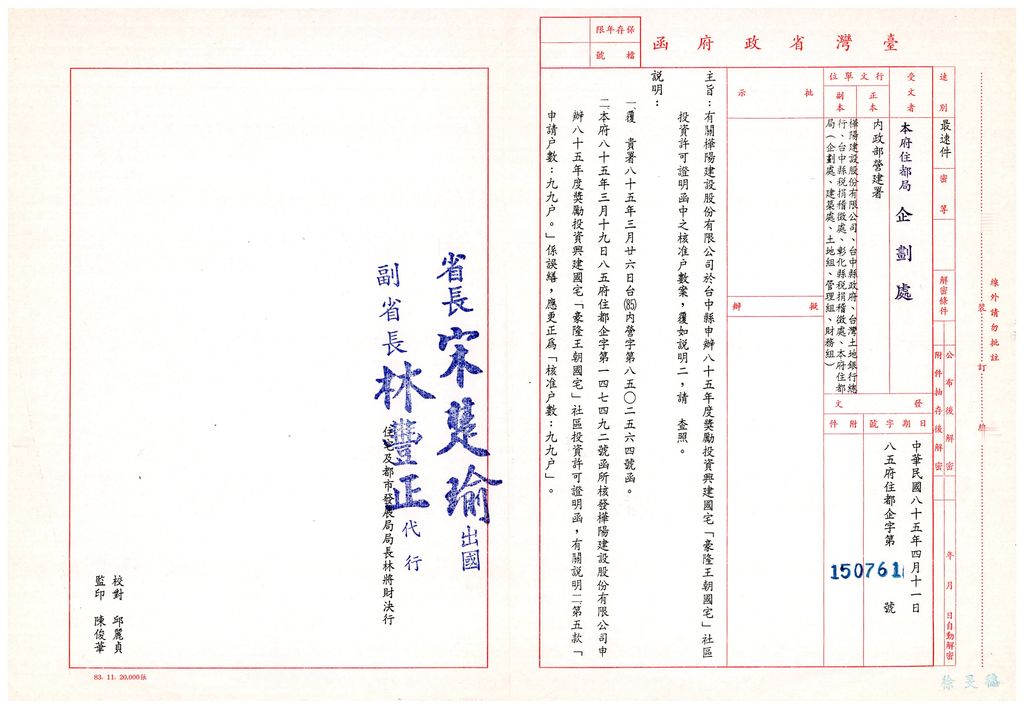 臺灣省政府函
保存年限
檔號
線外請勿批註
裝
訂
線
速別
最速件
密等
解密條件
公布後解密
附件抽存後解密
年月日自動解密
受文者
本府住都局 企劃處
行文單位
正本
內政部營建署
副本
樺陽建設股份有限公司、台中縣政府、台灣土地銀行總
行、台中縣稅捐稽徵處、彰化縣稅捐稽徵處、本府住都
局（企劃處、建築處、土地組、管理組、財務組）
發文
日期
中華民國八十五年四月十一日
字號
八五府住都企字第 150761 號
附件
批示
擬辦
主旨：有關樺陽建設股份有限公司於台中縣申辦八十五年度獎勵投資興建國宅「豪隆王朝國宅」社區
投資許可證明函中之核准户數案，覆如説明二，請 查照。
説明：
一、覆 貴署八十五年三月廿六日台(85)內營字第八五〇二五六四號函。
二、本府八十五年三月十九日八五府住都企字第一四七四九二號函所核發樺陽建設股份有限公司申
辦八十五年度獎勵投資興建國宅「豪隆王朝國宅」社區投資許可證明函，有關説明二第五款「
申請户數：九九户。」係誤繕，應更正為「核准户數：九九户」。
省長 宋楚瑜 出國
副省長 林豐正 代行
住宅及都市發展局局長林將財決行
校對 邱麗貞
監印 陳俊華
83. 11. 20,000張